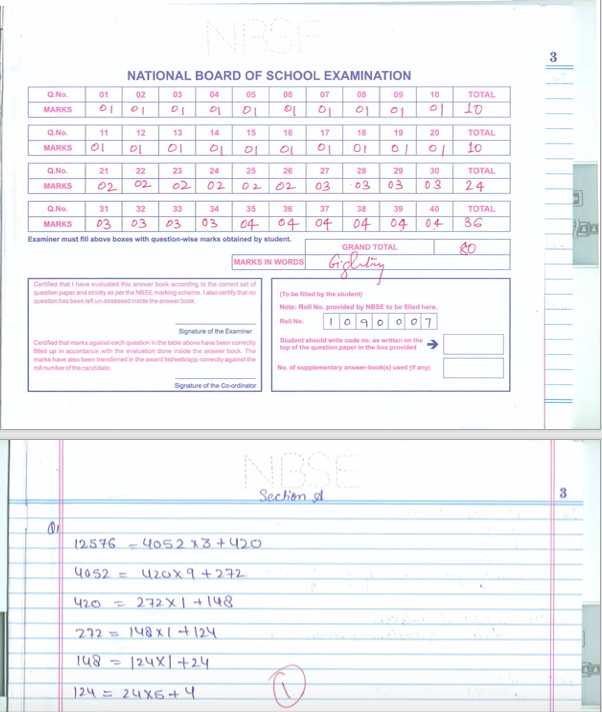 NBSE
3
NATIONAL BOARD OF SCHOOL EXAMINATION
Q.No. 01 02 03 04 05 06 07 08 09 10 TOTAL
MARKS 01 01 01 01 01 01 01 01 01 01 10
Q.No. 11 12 13 14 15 16 17 18 19 20 TOTAL
MARKS 01 01 01 01 01 01 01 01 01 01 10
Q.No. 21 22 23 24 25 26 27 28 29 30 TOTAL
MARKS 02 02 02 02 02 02 03 03 03 03 24
Q.No. 31 32 33 34 35 36 37 38 39 40 TOTAL
MARKS 03 03 03 03 04 04 04 04 04 04 36
Examiner must fill above boxes with question-wise marks obtained by student.
GRAND TOTAL 80
MARKS IN WORDS Eighty
Certified that I have evaluated this answer book according to the correct set of
question paper and strictly as per the NBSE marking scheme. I also certify that no
question has been left un-assessed inside the answer book.
Signature of the Examiner
Certified that marks against each question in the table above have been correctly
filled up in accordance with the evaluation done inside the answer book. The
marks have also been transferred in the award list/web/app correctly against the
roll number of the candidate.
Signature of the Co-ordinator
(To be filled by the student)
Note: Roll No. provided by NBSE to be filled here.
Roll No. 1 0 9 0 0 0 7
Student should write code no. as written on the
top of the question paper in the box provided
No. of supplementary answer-book(s) used (if any)
NBSE
3
Section A
Q1
12576 = 4052 x 3 + 420
4052 = 420 x 9 + 272
420 = 272 x 1 + 148
272 = 148 x 1 + 124
148 = 124 x 1 + 24
124 = 24 x 5 + 4
1